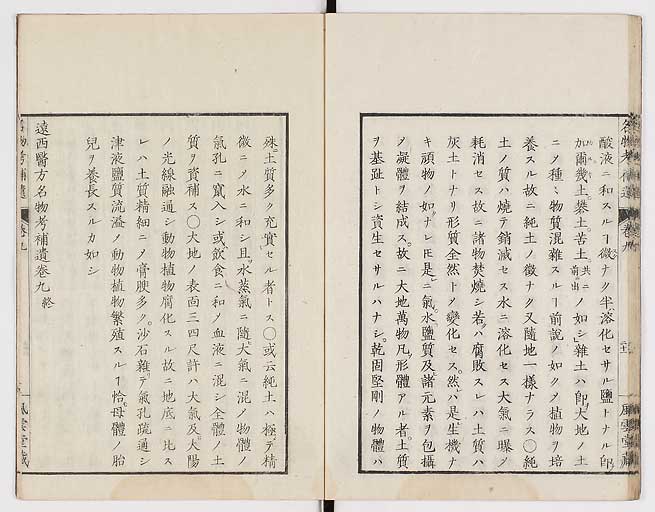 酸液ニ和スルヿ微ナク半溶化セサル鹽トナル即
加爾幾土。礬土。苦土。共ニ前ニ出ノ如シ」雜土ハ即大地ノ土
ニノ種々物質混雜スルヿ前說ノ如ク植物ヲ培
養スル故ニ純土ノ微ナク又隨地一樣ナラス○純
土ノ質ハ燒テ銷滅セス水ニ溶化セス大氣ニ曝ノ
耗消セス故ニ諸物焚燒シ若ハ腐敗スレハ土質ハ
灰土トナリ形質全然トノ變化セス。然ハ是生機ナ
キ頑物ノ如ナレ𪜈是ニ氣。水。鹽質及諸元素ヲ包攝
ノ凝體ヲ結成ス。故ニ大地萬物凡形體アル者。土質
ヲ基趾トシ資生セサルハナシ。乾固堅剛ノ物體ハ
殊ニ土質多ク充實セル者トス○或云純土ハ極テ精
微ニノ水ニ和シ且水蒸氣ニ隨大氣ニ混ノ物體ノ
氣孔ニ竄入シ或飮食ニ和ノ血液ニ混シ全體ノ土
質ヲ資補ス○大地ノ表面三四尺許ハ大氣及大陽
ノ光線融通シ動物植物腐化スル故ニ地底ニ比ス
レハ土質精細ニノ膏腴多ク。沙石雜テ氣孔疏通シ
津液鹽質流溢ノ動物植物繁殖スルヿ恰母體ノ胎
兒ヲ養長スルカ如シ
遠西醫方名物考補遺卷九 終